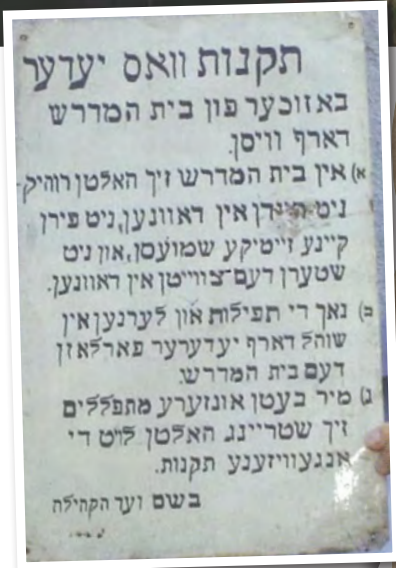 תקנות וואס יעדער
באזוכער פון בית המדרש
דארף וויסן.
א) אין בית המדרש זיך האלטן רוהיק-
ניט רעדן אין דאווענען, ניט פירן
קיינע זייטיקע שמועסן, און ניט
שטערן דעם צווייטן אין דאווענען.
ב) נאך די תפילות און לערנען אין
שוהל דארף יעדערער פארלאזן
דעם בית המדרש.
ג) מיר בעטן אונזערע מתפללים
זיך שטריינג האלטן לויט די
אנגעוויזענע תקנות.
בשם ועד הקהילה